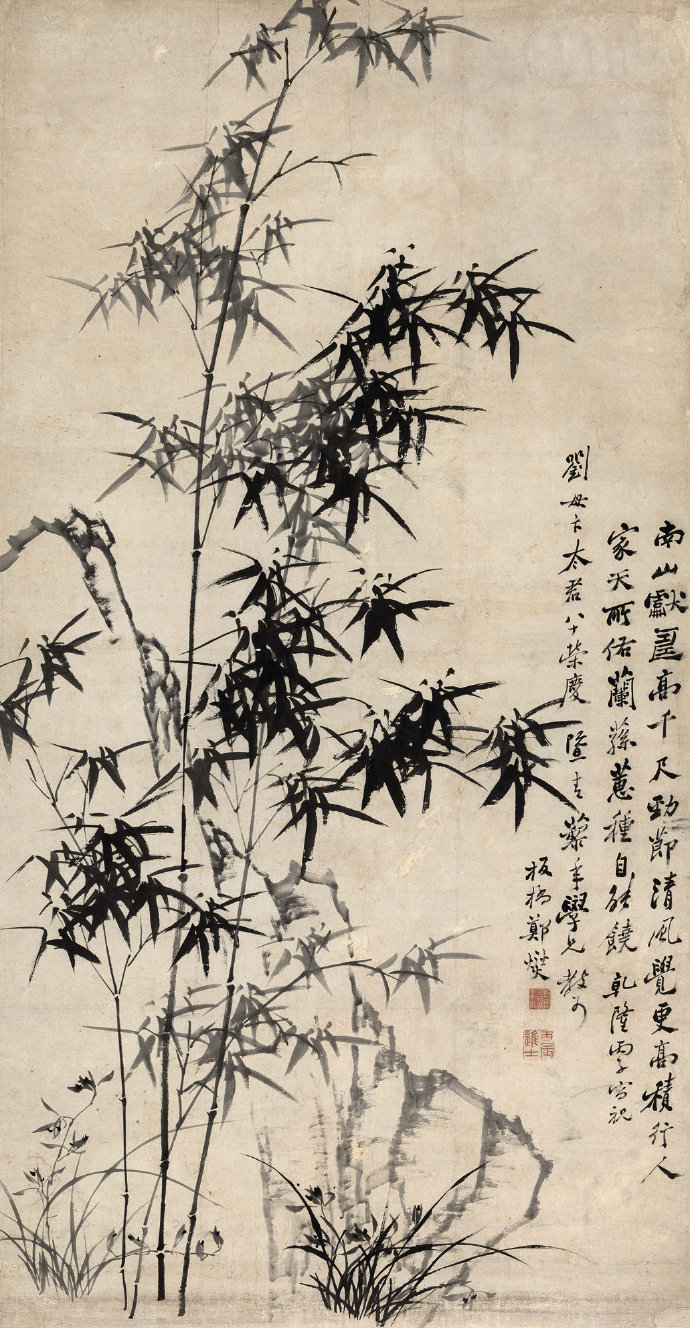 南山獻壽高千尺勁節清風覺更高積行人
家天所佑蘭蓀蕙種自能饒 乾隆丙子寫祝
劉母卞太君八十榮慶 暨 藜年學兄教可
板橋鄭燮
丙辰進士